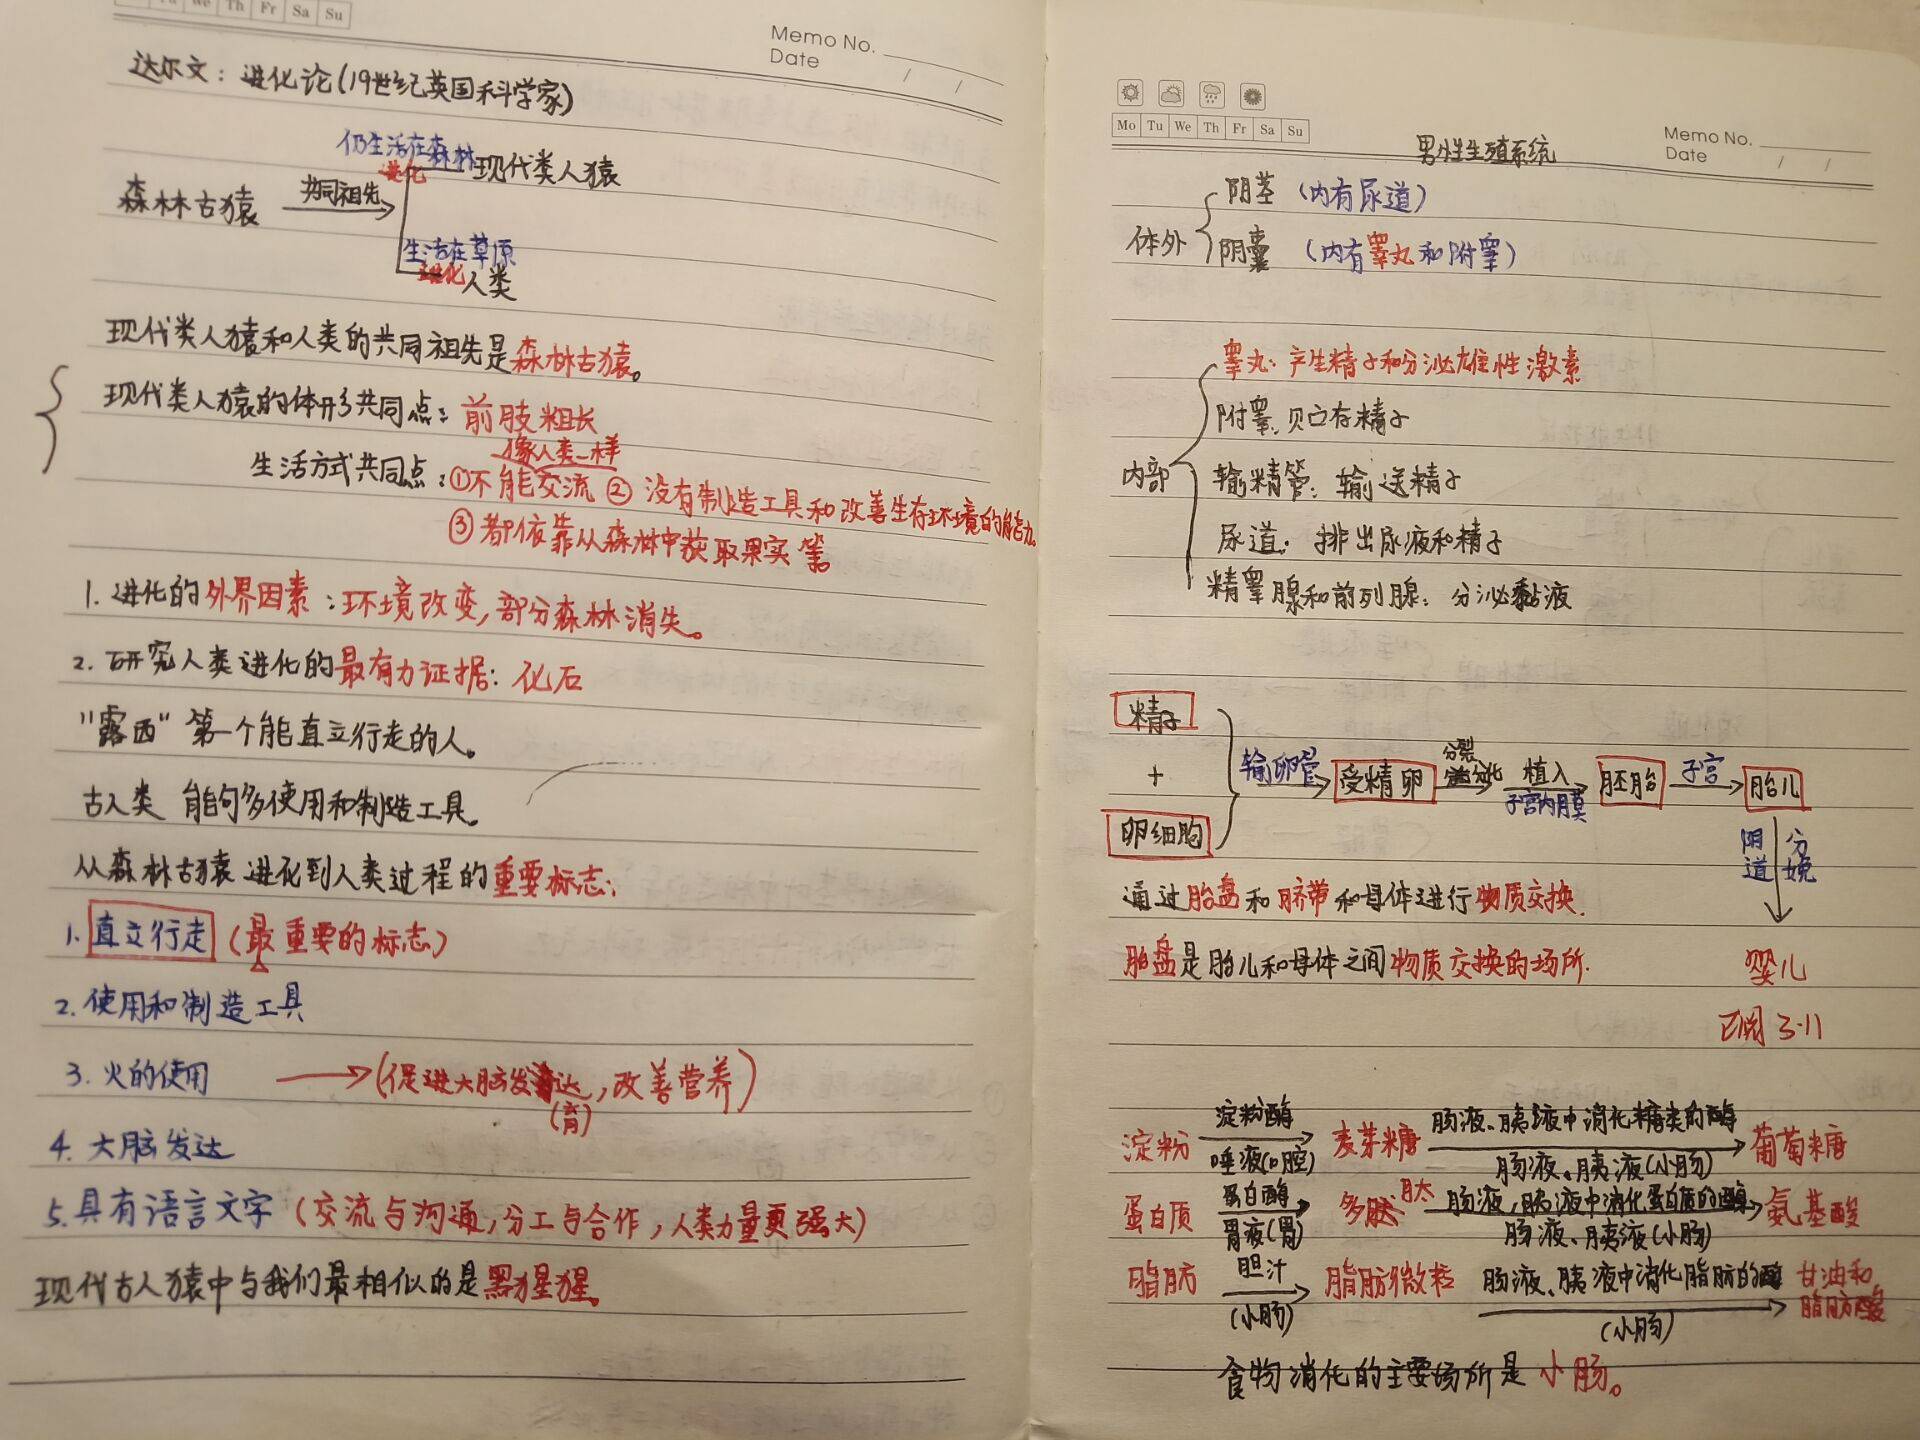 Tu We Th Fr Sa Su
Memo No.
Date / /
达尔文：进化论(19世纪英国科学家)
仍生活在森林
进化 现代类人猿
森林古猿 共同祖先
生活在草原
进化 人类
现代类人猿和人类的共同祖先是森林古猿。
现代类人猿的体形共同点：前肢粗长
像人类一样
生活方式共同点：①不能交流 ② 没有制造工具和改善生存环境的能力。
③ 都依靠从森林中获取果实 等
1. 进化的外界因素：环境改变，部分森林消失。
2. 研究人类进化的最有力证据：化石
"露西" 第一个能直立行走的人。
古人类 能够多使用和制造工具。
从森林古猿进化到人类过程的重要标志：
1. 直立行走 (最重要的标志)
2. 使用和制造工具
3. 火的使用 → (促进大脑发达，改善营养)
(育)
4. 大脑发达
5. 具有语言文字 (交流与沟通，分工与合作，人类力量更强大)
现代古人猿中与我们最相似的是黑猩猩。
Mo Tu We Th Fr Sa Su
Memo No.
Date / /
男性生殖系统
体外
阴茎 (内有尿道)
阴囊 (内有睾丸和附睾)
内部
睾丸：产生精子和分泌雄性激素
附睾：贮存精子
输精管：输送精子
尿道：排出尿液和精子
精睾腺和前列腺：分泌黏液
精子
+
卵细胞
输卵管 → 受精卵 分裂 分化 → 植入 子宫内膜 → 胚胎 子宫 → 胎儿
阴道 分娩
通过胎盘和脐带和母体进行物质交换.
胎盘是胎儿和母体之间物质交换的场所.
婴儿
已阅 3·11
淀粉 淀粉酶 唾液(口腔) → 麦芽糖 肠液、胰液中消化糖类的酶 肠液、胰液(小肠) → 葡萄糖
蛋白质 蛋白酶 胃液(胃) → 多肽 肽 肠液，胰液中消化蛋白质的酶 肠液、胰液(小肠) → 氨基酸
脂肪 胆汁 (小肠) → 脂肪微粒 肠液、胰液中消化脂肪的酶 (小肠) → 甘油和脂肪酸
食物消化的主要场所是小肠。